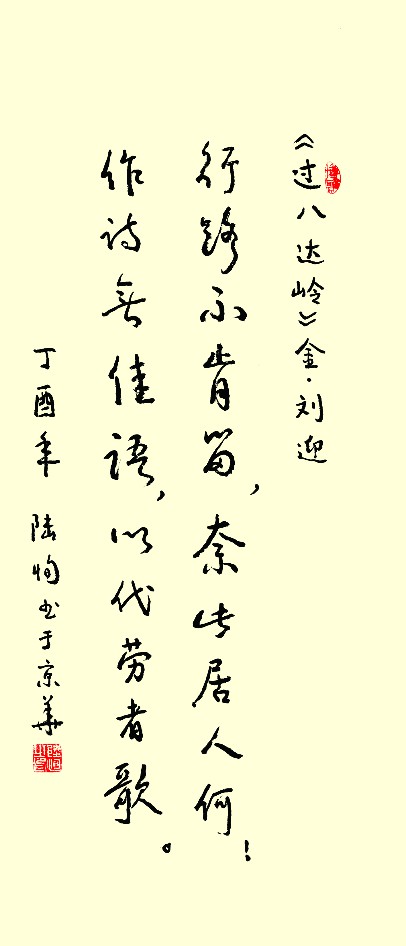 《过八达岭》金·刘迎
行路不肯留，奈此居人何！
作诗無佳语，以代劳者歌。
丁酉年 陆恂书于京華